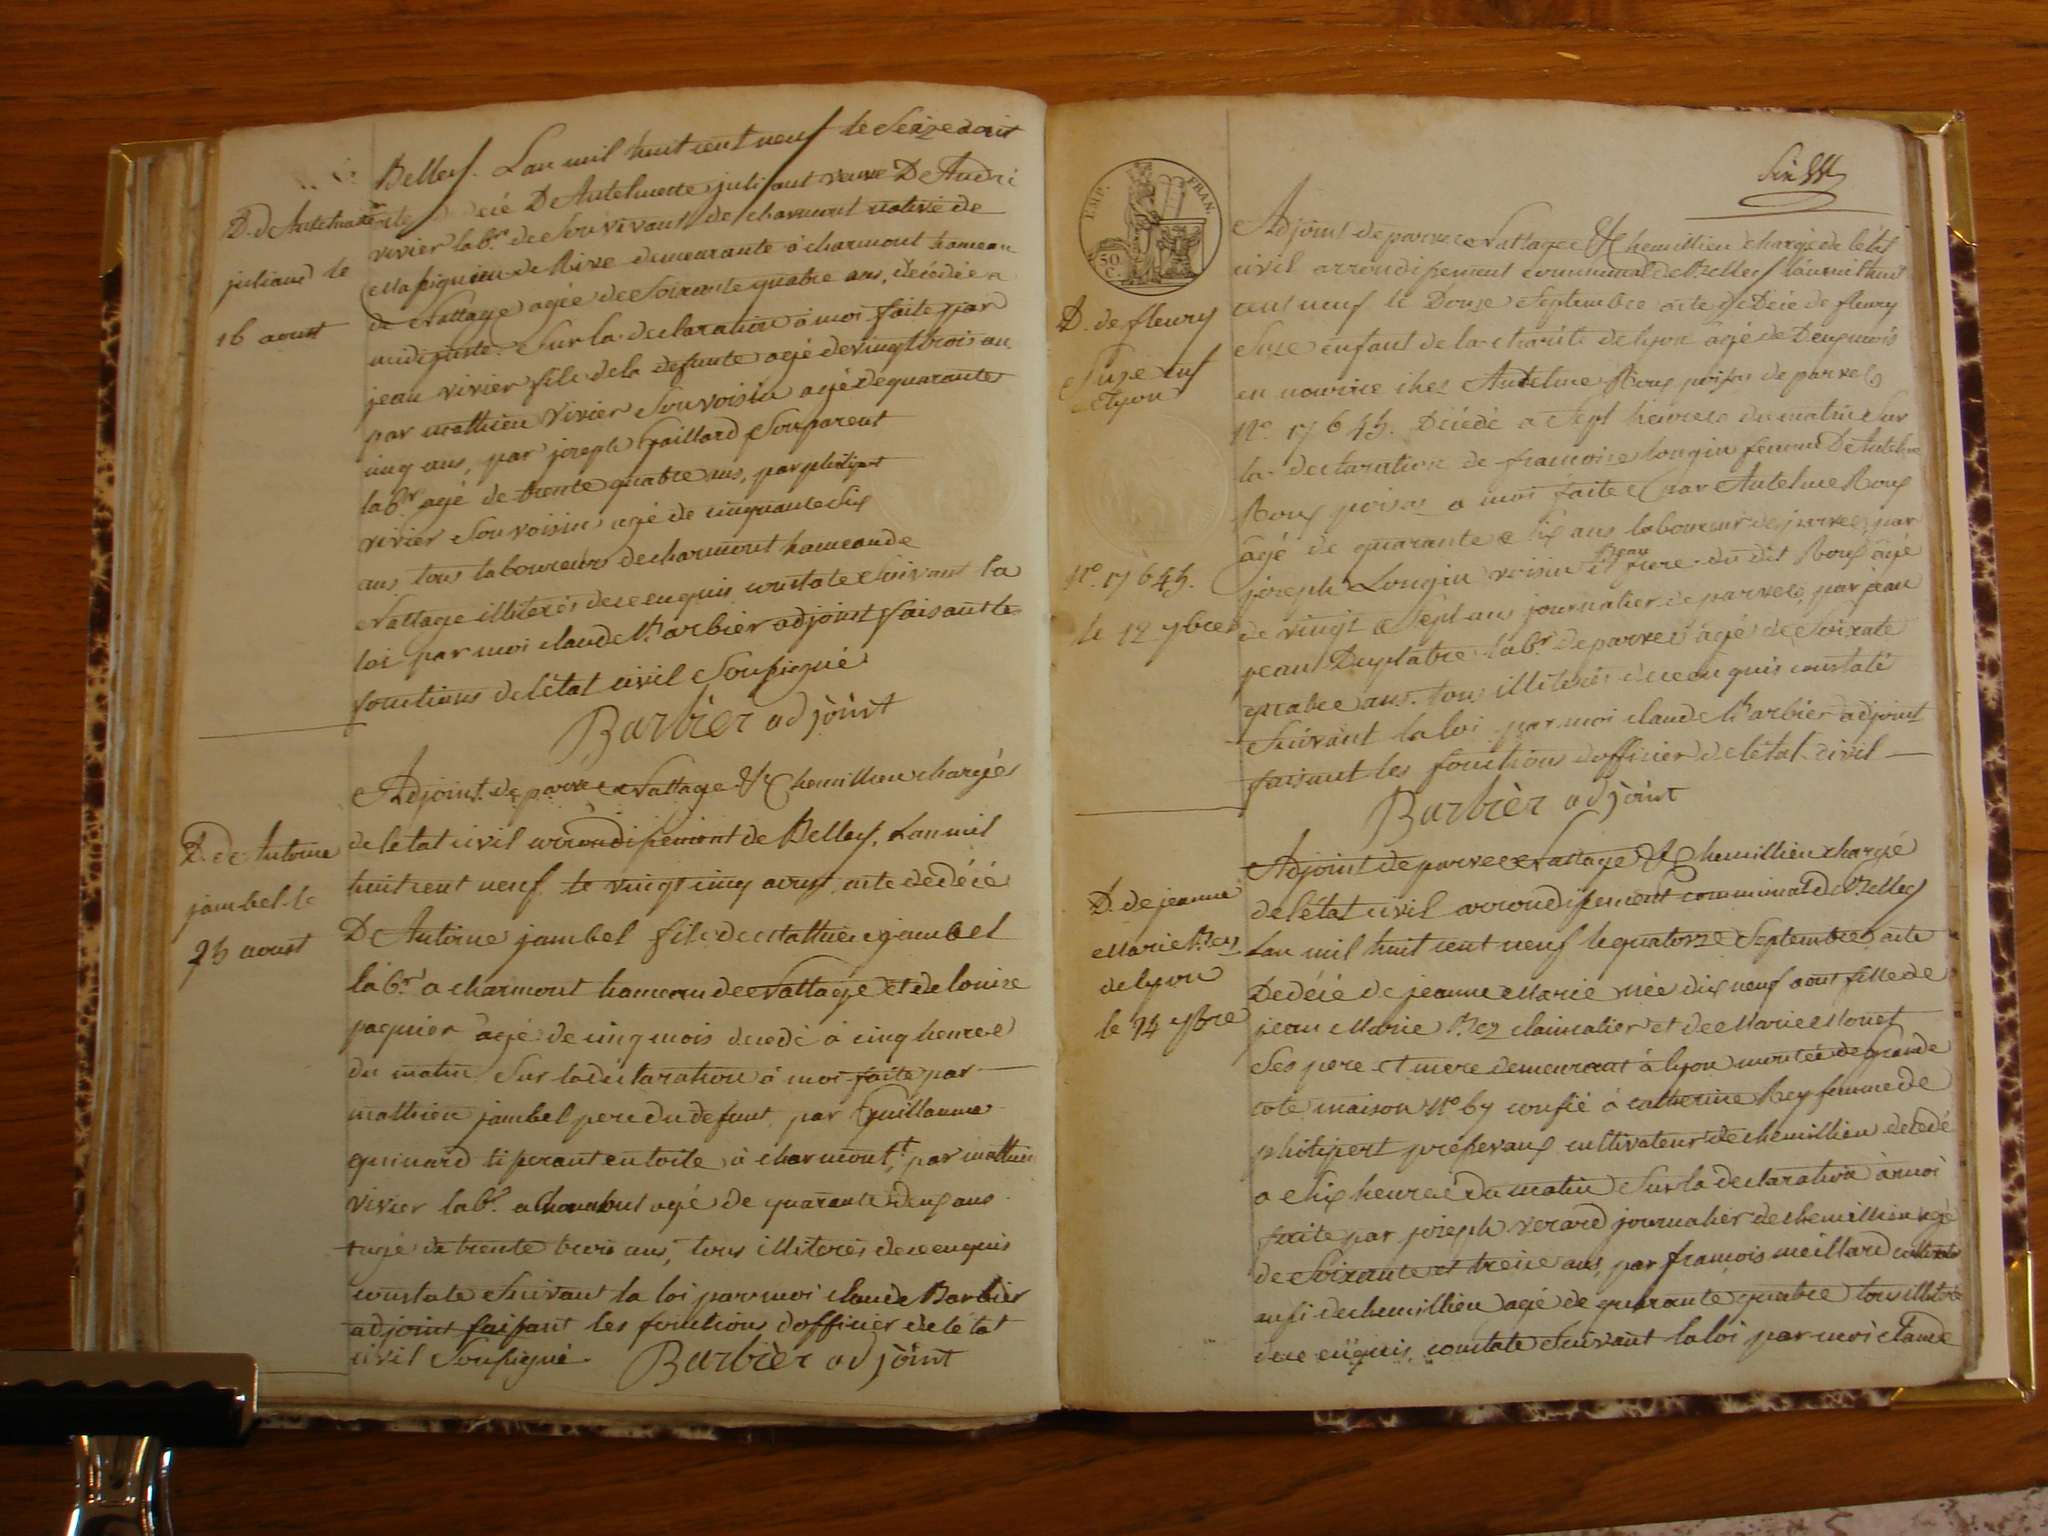 Belley. Lan mil huit cent neuf le Seize aout
D. de Antelmette
juliand le
16 aoust
Décé De Antelmette juliant veuve De André
vivier lab.r de Son vivant de charmont native de
Massignieu de Rive demeurante à charmont hameau
de Nattage agée de Soixante quatre ans, décédée a
midi juste. Sur la declaration à moi faite par
jean vivier fils de la defunte agé de vingt trois an
par mathieu vivier Son voisin agé de quarante
cinq ans, par joseph Gaillard Son parent
lab.r agé de trente quatre ans, par philipert
vivier Son voisin agé de cinquante Six
ans tous laboureurs de charmont hameau de
Nattage illiterés de ce enquis constaté Suivant la
loi par moi claude Barbier adjoint faisant les
fonctions de létat civil Soussigné
Barbier adjoint
Adjoint de parve Nattage & Chemillieu chargés
D. de Antoine
jambel le
25 aoust
de létat civil arrondissement de Belley. Lan mil
huit cent neuf le vingt cinq aoust acte de décé
De Antoine jambel fils de Mathieu jambel
lab.r a charmont hameau de Nattage et de louise
paquier agé de cinq mois decedé à cinq heures
du matin Sur la declaration à moi faite par
mathieu jambel pere du defunt par Guillaume
guinard tisserant en toile à charmont, par mathieu
vivier lab.r a charmont agé de quarante deux ans
agé de trente trois ans, tous illiterés de ce enquis
constaté Suivant la loi par moi claude Barbier
adjoint faisant les fonctions dofficier de létat
civil Soussigné. Barbier adjoint
Six
EMP. FRAN.
50 C.
D. de fleury
Suze enf
Lyon
N.o 17645.
le 12 7bre
Adjoint de parves Nattage & Chemillieu chargé de létat
civil arrondissement communal de Belley lan mil huit
cent neuf le Douze Septembre acte de Décé de fleury
Suze enfant de la charité de lyon agé de Deux mois
en nourice chez Antelme Roux poisas de parves
N.o 17645. Décédé a Sept heures du matin Sur
la declaration de francoise longin femme De Antelme
Roux poisas a moi faite & par Antelme Roux
âgé de quarante & Six ans laboureur de parves, par
joseph Longin voisin et Beau frere du dit Roux agé
de vingt & Sept ans journalier de parves, par jean
jean Duplatre lab.r de parves agé de Soixante
quatre ans. tous illiterés de ce enquis constaté
Suivant la loi par moi claude Barbier adjoint
faisant les fonctions dofficier de létat civil
Barbier adjoint
D. de jeanne
Marie Rey
de lyon
le 14 7bre
Adjoint de parves Nattage & Chemillieu chargé
de létat civil arrondissement communal de Belley
Lan mil huit cent neuf le quatorze Septembre acte
De décé de jeanne Marie née dix neuf aout fille de
jean Marie Rey et de Marie Monet
Ses pere et mere demeurant à lyon montée de grande
cote maison N.o 67 confié à catherine Rey femme de
philipert cultivateur de chemillieu decedé
a Six heures du matin Sur la declaration à moi
faite par joseph verard journalier de chemillieu agé
de Soixante et treize ans, par francois meillard cultivateur
aussi de chemillieu agé de quarante quatre tous illiterés
de ce enquis, constaté Suivant la loi par moi claude